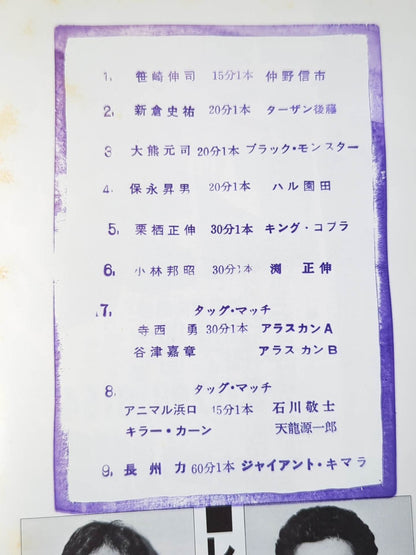 1. 笹崎伸司 15分1本 仲野信市
2. 新倉史祐 20分1本 ターザン後藤
3 大熊元司 20分1本 ブラック・モンスター
4. 保永昇男 20分1本 ハル園田
5. 栗栖正伸 30分1本 キング・コブラ
6. 小林邦昭 30分1本 渕 正伸
7. タッグ・マッチ
寺西 勇 30分1本 アラスカンA
谷津嘉章 アラスカンB
8. タッグ・マッチ
アニマル浜口 15分1本 石川敬士
キラー・カーン 天龍源一郎
9. 長州 力 60分1本 ジャイアント・キマラ